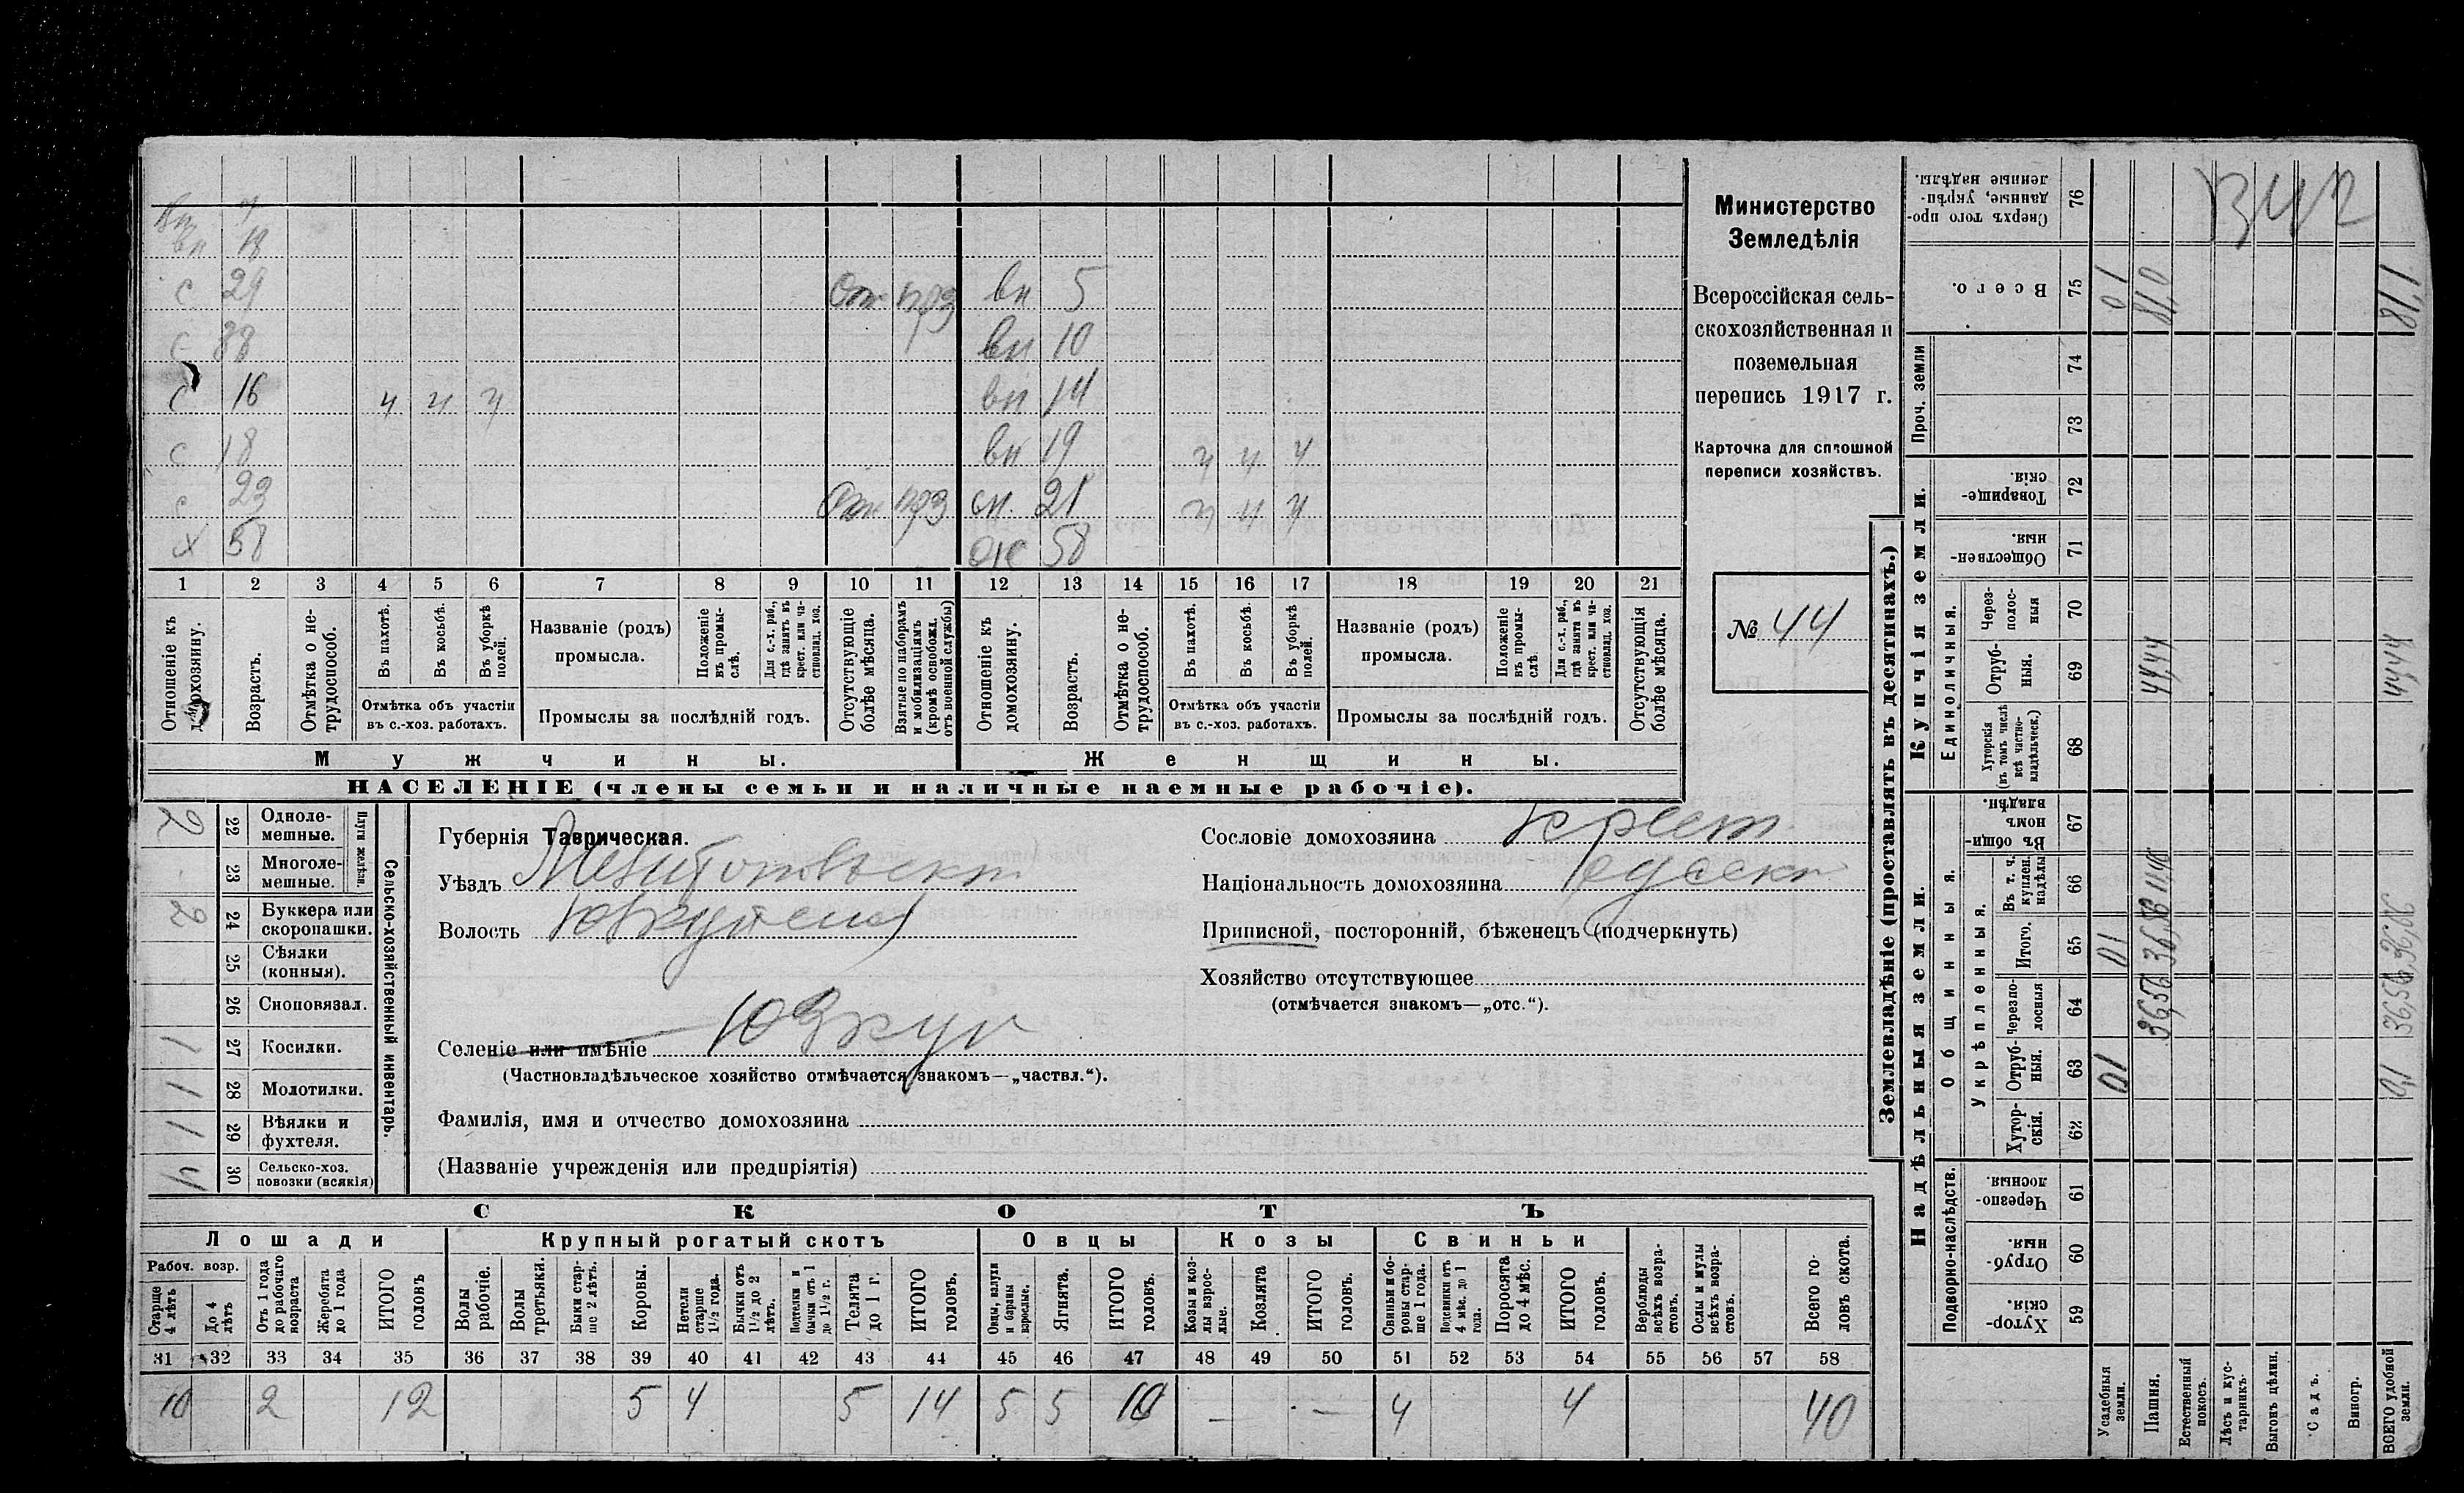 вн 18
с 29 вн 5
с 38 вн 10
с 16 ч ч ч вн 14
с 18 вн 19 ч ч ч
с 23 сн. 21 ч ч ч
х 58 ж 58
1 2 3 4 5 6 7 8 9 10 11 12 13 14 15 16 17 18 19 20 21
Отношеніе къ домохозяину.
Возрастъ.
Отмѣтка о не-
трудоспособ.
Въ пахотѣ.
Въ косьбѣ.
Въ уборкѣ
полей.
Отмѣтка объ участіи
въ с.-хоз. работахъ.
Названіе (родъ)
промысла.
Положеніе
въ промы-
слѣ.
Для с.-х. раб.,
гдѣ занятъ въ
крест. или ча-
стновлад. хоз.
Промыслы за послѣдній годъ.
Отсутствующіе
болѣе мѣсяца.
Взятые по наборамъ
и мобилизаціямъ
(кромѣ освобожд.
отъ военной службы)
Отношеніе къ
домохозяину.
Возрастъ.
Отмѣтка о не-
трудоспособ.
Въ пахотѣ.
Въ косьбѣ.
Въ уборкѣ
полей.
Отмѣтка объ участіи
въ с.-хоз. работахъ.
Названіе (родъ)
промысла.
Положеніе
въ промы-
слѣ.
Для с.-х. раб.,
гдѣ занята въ
крест. или ча-
стновлад. хоз.
Промыслы за послѣдній годъ.
Отсутствующія
болѣе мѣсяца.
Мужчины.
Женщины.
НАСЕЛЕНІЕ (члены семьи и наличные наемные рабочіе).
Министерство
Земледѣлія
Всероссійская сель-
скохозяйственная и
поземельная
перепись 1917 г.
Карточка для сплошной
переписи хозяйствъ.
№ 44
Сельско-хозяйственный инвентарь.
Плуги желѣзн.
2 22 Одноле-
мешные.
23 Многоле-
мешные.
2 24 Буккера или
скоропашки.
25 Сѣялки
(конныя).
26 Сноповязал.
1 27 Косилки.
1 28 Молотилки.
1 29 Вѣялки и
фухтеля.
4 30 Сельско-хоз.
повозки (всякія)
Губернія Таврическая.
Уѣздъ Мелитопольск
Волость
Селеніе или имѣніе Юзкуи
(Частновладѣльческое хозяйство отмѣчается знакомъ—„частвл.“).
Фамилія, имя и отчество домохозяина
(Названіе учрежденія или предпріятія)
Сословіе домохозяина крест.
Національность домохозяина русск
Приписной, посторонній, бѣженецъ (подчеркнуть)
Хозяйство отсутствующее
(отмѣчается знакомъ—„отс.“).
СКОТЪ
Лошади Крупный рогатый скотъ Овцы Козы Свиньи
Рабоч. возр.
Старше
4 лѣтъ
До 4
лѣтъ
Отъ 1 года
до рабочаго
возраста
Жеребята
до 1 года
ИТОГО
головъ
Волы
рабочіе.
Волы
третьяки.
Быки стар-
ше 2 лѣтъ.
Коровы.
Нетели
старше
1½ года.
Бычки отъ
1½ до 2
лѣтъ.
Подтелки и
бычки отъ 1
до 1½ г.
Телята
до 1 г.
ИТОГО
головъ.
Овцы, валухи
и бараны
взрослые.
Ягнята.
ИТОГО
головъ.
Козы и коз-
лы взрос-
лые.
Козлята
ИТОГО
головъ.
Свиньи и бо-
ровы стар-
ше 1 года.
Подсвинки отъ
4 мѣс. до 1
года.
Поросята
до 4 мѣс.
ИТОГО
головъ.
Верблюды
всѣхъ возра-
стовъ.
Ослы и мулы
всѣхъ возра-
стовъ.
Всего го-
ловъ скота.
31 32 33 34 35 36 37 38 39 40 41 42 43 44 45 46 47 48 49 50 51 52 53 54 55 56 57 58
10 2 12 5 4 5 14 5 5 10 — — 4 4 40
Землевладѣніе (проставлять въ десятинахъ.)
Надѣльныя земли.
Купчія земли.
Проч. земли
Подворно-наслѣдств.
Общинныя.
Укрѣпленныя.
Единоличныя.
Хутор-
скія 59
Отруб-
ныя. 60
Черезпо-
лосныя. 61
Хутор-
скія. 62
Отруб-
ныя. 63
Черезпо-
лосныя 64
Итого. 65
Въ т. ч.
куплен.
надѣлы 66
Въ общин-
номъ
владѣн. 67
Хуторскія
(въ томъ числѣ
всѣ частно-
владѣльческ.) 68
Отруб-
ныя. 69
Через-
полос-
ныя 70
Обществен-
ныя. 71
Товарище-
скія. 72
73
74
Всего. 75
Сверхъ того про-
данные, укрѣп-
ленные надѣлы. 76
Усадебныя
земли. 01 01 01
Пашня. 36,56 36,56 44,44 81,0
Естественный
покосъ.
Лѣсъ и кус-
тарникъ.
Выгонъ цѣлин.
Садъ.
Виногр.
ВСЕГО удобной
земли. 0,1 36,56 36,66 44,44 81,1